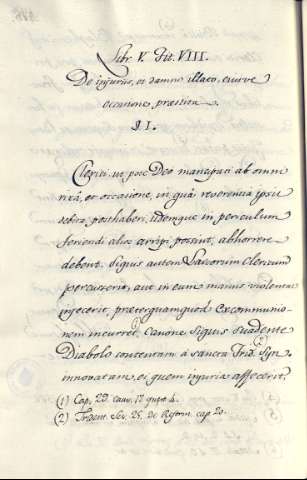 Libr. V. Tit. VIII.
De injuriis, et damno illato, ejusve
occasione, præstita
§. I.
Clerici, ut pote Deo mancipati ab omni
rixâ, et occasione, in quâ reverentia ipsis
debita posthaberi, iidemque in periculum
feriendi alios arripi possint, abhorrere
debent. Siquis autem Sacrorum Clericum
percusserit, aut in eum manus violentas
injecerit, præterquamquod excommunio-
nem incurret, Canone Siquis suadente
Diabolo contentam à sancta Trid. Syn.
innovatam, ei quem injuria affecerit,
(1) Cap. 29. caus. 17. quæst. 4.
(2) Trident. Ses. 25. de Reform. cap. 20.